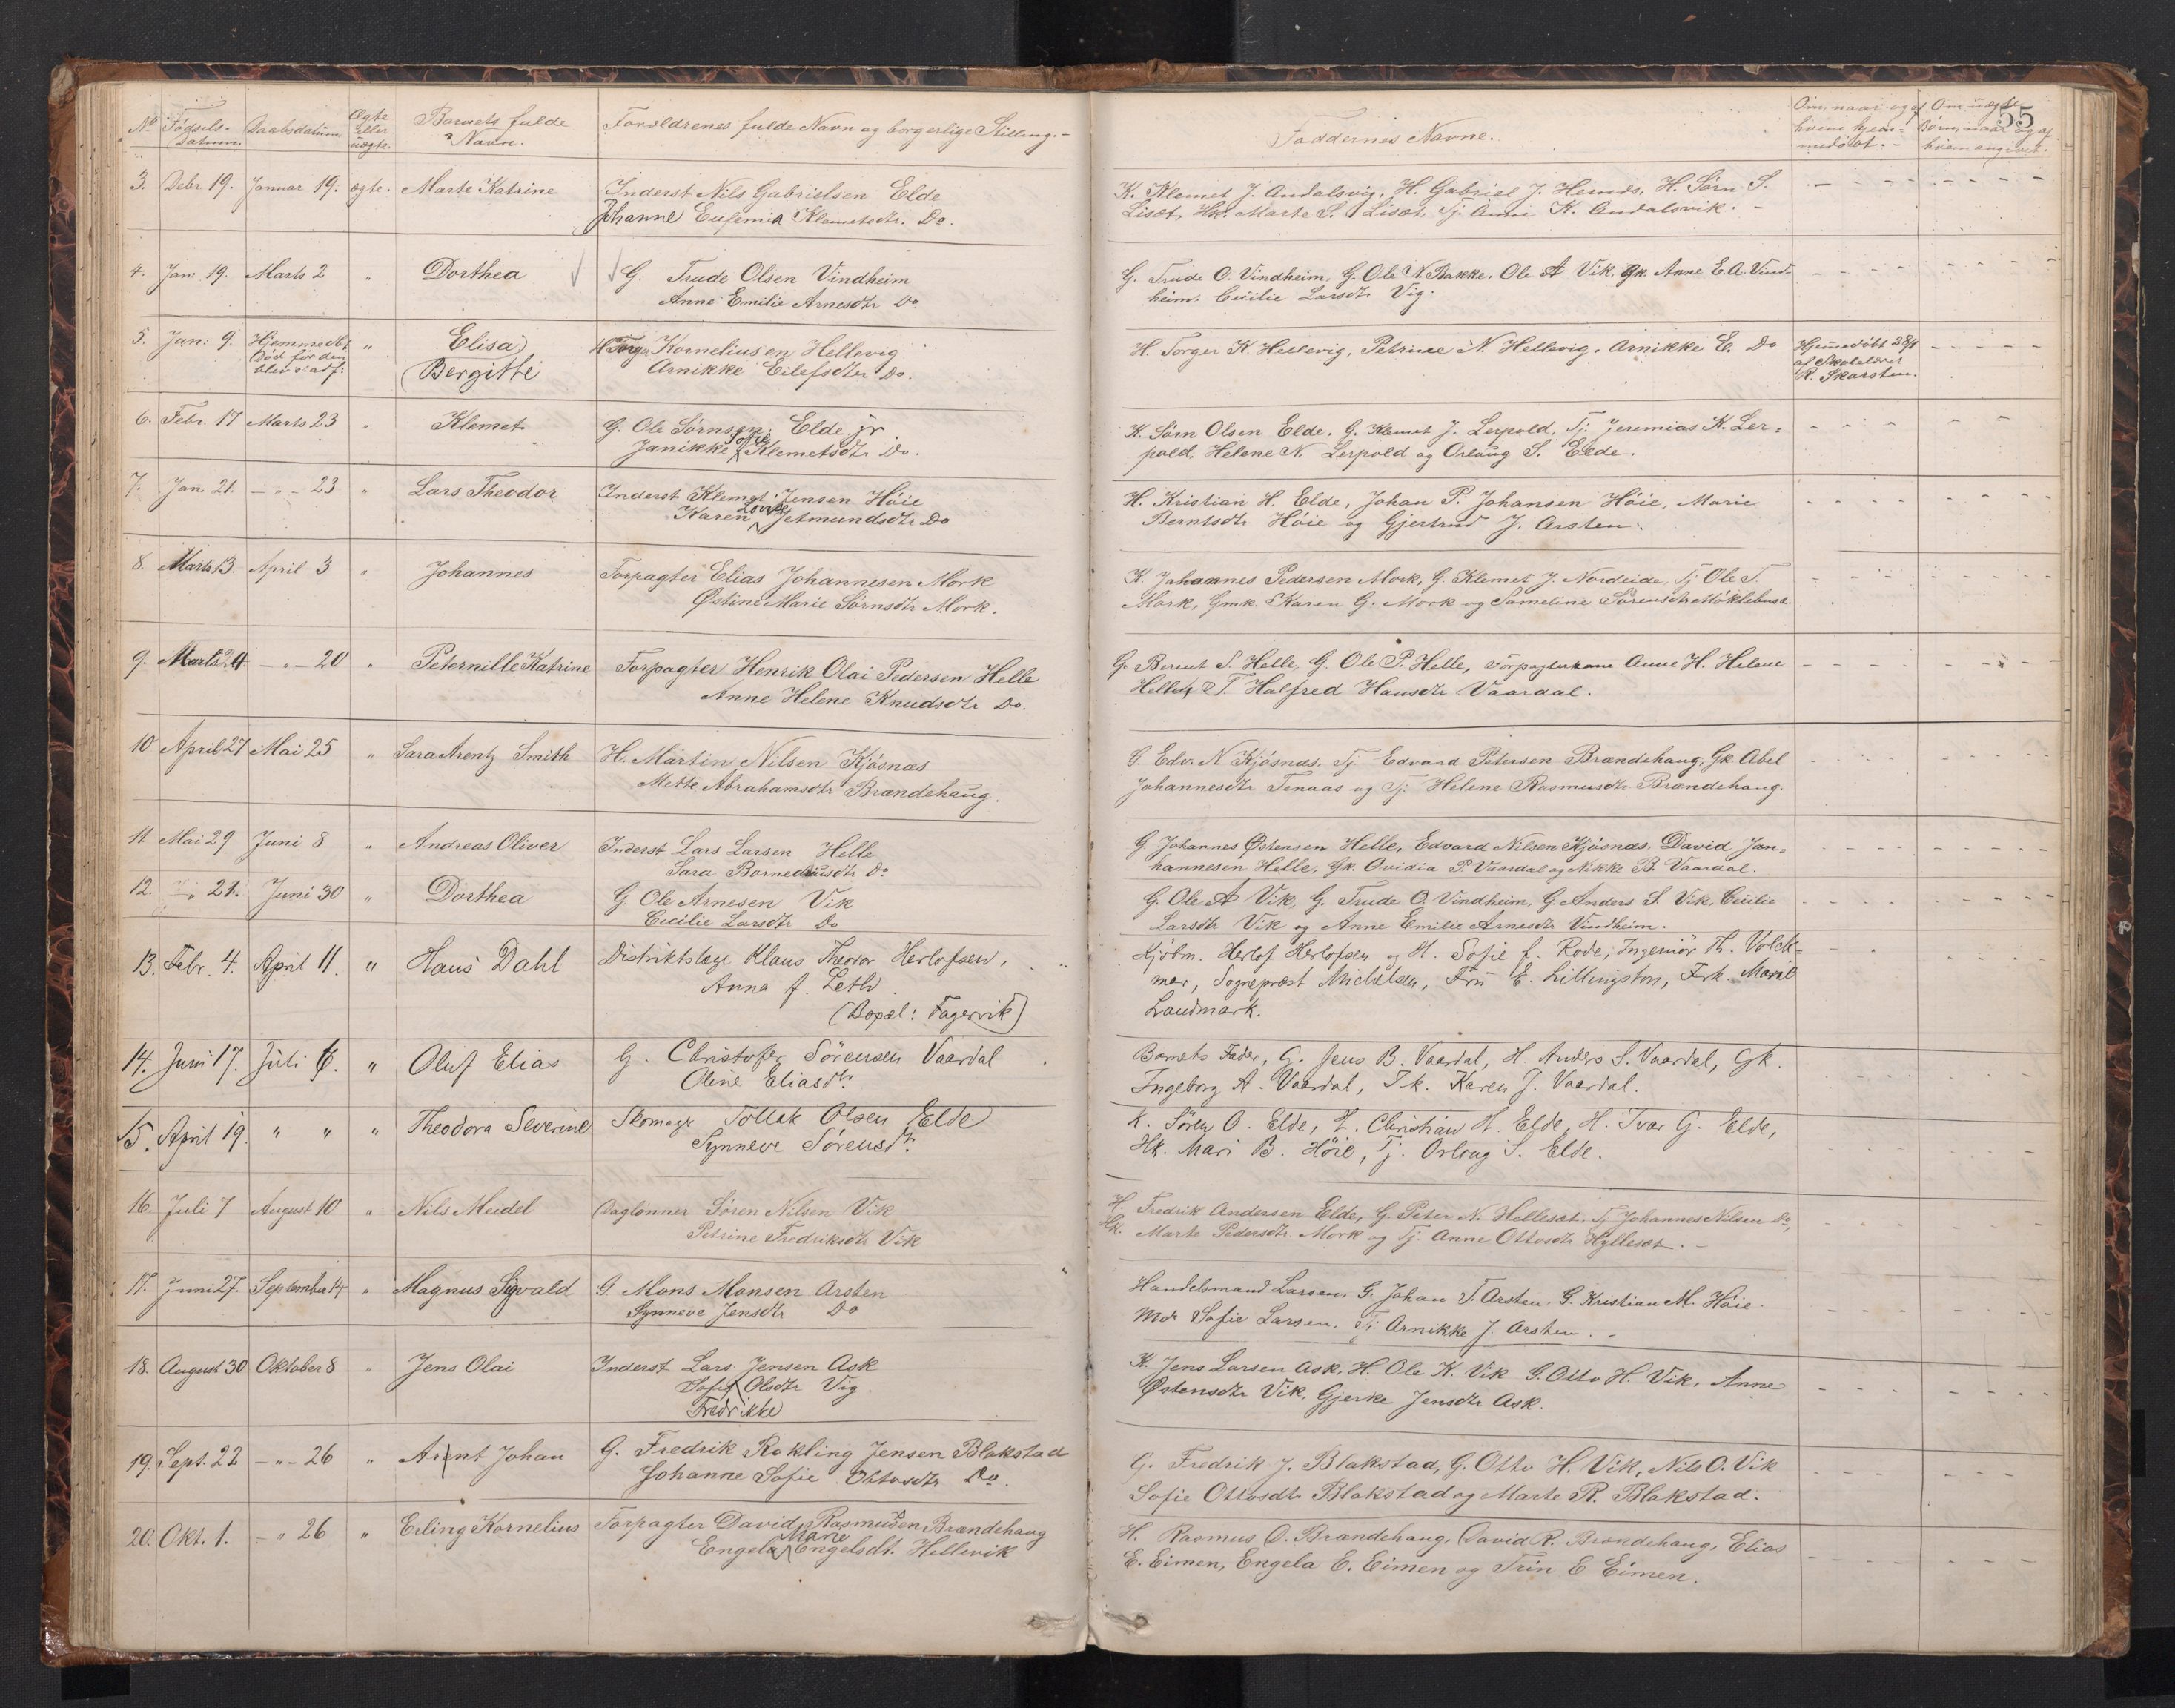 55
No Fødsels-Datum. Daabsdatum Ægte eller uægte. Barnets fulde Navn. Forældrenes fulde Navn og borgerlige Stilling.-
Faddernes Navne. Om, naar og af hvem hjemmedøbt.- Om uægte Børn, naar og af hvem angivet.-
3. Debr 19. Januar 19. ægte. Marte Katrine Inderst Nils Gabrielsen Elde
Johanne Eufemia Klemetsdtr. Do.
K. Klemet J. Andalsvig, H. Gabriel J. H. Sørn S.
Liset, Hk. Marte S. Liset, Tj. Anne K. Andalsvik. -
4. Jan: 19. Marts 2 " Dorthea G. Trude Olsen Vindheim
Anne Emilie Arnesdtr Do.
G. Trude O. Vindheim, G. Ole N. Bakke, Ole A Vik, Gk. Anne E. A. Vind-
heim. Cecilie Larsdtr Vig.
5. Jan: 9. Hjemmedbt. Død før den blev stadf: " Elisa Bergitte H Torger Korneliusen Hellevig
Arnikke Eilefsdtr Do.
H. Torger K. Hellevig, Petrine N. Hellevig, Arnikke E. Do Hjemmedøbt af Skolelærer R. Skarsten.
6. Febr. 17 Marts 23 " Klemet G. Ole Sørnsen Elde jr
Janikke Sofie Klemetsdtr. Do.
K. Sørn Olsen Elde, G. Klemet J. Lerpold, Tj. Jeremias K. Ler-
pold, Helene N. Lerpold og Orlaug S. Elde.
7. Jan. 21. - " - 23 " Lars Theodor Inderst Klemet Jensen Høie
Karen Lovise Jetmundsdtr Do
H. Kristian H. Elde, Johan P. Johansen Høie, Marie
Berntsdtr Høie og Gjertrud J. Arsten.
8. Marts 13. April 3 " Johannes Forpagter Elias Johannesen Mork
Østine Marie Sørnsdtr Mork.
K. Johannes Pedersen Mork, G. Klemet J. Nordeide, Tj Ole T.
Mork, Gmk. Karen G. Mork og Sameline Sørensdtr Møklebust.
9. Marts 24 - " - 20 " Peternille Katrine Forpagter Henrik Olai Pedersen Helle
Anne Helene Knudsdtr Do.
G. Berent S. Helle, G. Ole P. Helle, Forpagterkone Anne H. Helene
Helle, T. Halfred Hansdtr Vaardal.
10 April 27 Mai 25 " Sara Arentz Smith H. Martin Nilsen Kjøsnæs
Mette Abrahamsdtr Brændehaug.
G. Edv. N. Kjøsnæs, Tj Edvard Petersen Brændehaug, Gk. Abel
Johannesdtr Tenaas og Tj. Helene Rasmusdtr Brændehaug.
11. Mai 29 Juni 8 " Andreas Oliver Inderst Lars Larsen Helle
Sara Do
G. Johannes Østensen Helle, Edvard Nilsen Kjøsnæs, David Jon-
hannesen Helle, Gk. Ovidia P. Vaardal og Nikke B. Vaardal.
12. - " 21. Juni 30 " Dorthea G. Ole Arnesen Vik
Cecilie Larsdtr Do
G. Ole A Vik, G. Trude O. Vindheim, G. Anders S. Vik, Cecilie
Larsdtr Vik og Anne Emilie Arnesdtr Vindheim.
13. Febr. 4. April 11. " Hans Dahl Distriktslæge Klaus Theodor Herlofsen,
Anna f. Leth
(Bopæl: Fagervik)
Kjøbm. Herlof Herlofsen og H. Sofie f. Rode, Ingeniør Th. Volck-
mar, Sogneprest Michelsen, Fru E. Lillingston, Frk. Marie
Landmark.
14. Juni 17. Juli 6. " Oluf Elias G. Christofer Sörensen Vaardal
Oline Eliasdtr
Barnets Fader, G. Jens B. Vaardal, H. Anders S. Vaardal, Gk.
Ingeborg A. Vaardal, Tk. Karen J. Vaardal.
15. April 19. " " " Theodora Severine Skomager Tollak Olsen Elde
Synneve Sörensdtr.
K. Sören O. Elde, H. Christian H. Elde, H. Ivar G. Elde,
Hk. Mari B. Höie, Tj. Orlaug S. Elde.
16. Juli 7 August 10 " Nils Meidel Daglønner Søren Nilsen Vik
Petrine Fredriksdtr Vik
H. Fredrik Andersen Elde, G. Peter N. Hellesæt, Tj Johannes Nilsen Do,
Hk. Marte Pedersdtr. Mork og Tj. Anne Ottosdtr Hyllesæt. -
17. Juni 27. September 14 " Magnus Sigvald G. Mons Monsen Arsten
Synneve Jensdtr Do
Handelsmand Larsen, G. Johan T. Arsten, G. Kristian M. Høie.
Md. Sofie Larsen. Tj: Arnikke J. Arsten. -
18. August 30 Oktober 8 " Jens Olai Inderst Lars Jensen Ask
Sofie Olsdtr Vig
Fredrikke
K. Jens Larsen Ask, H. Ole K. Vik G. Otto H. Vik, Anne
Østensdtr Vik, Gjerke Jensdtr Ask.
19. Sept. 22 - " - 26 " Arent Johan G. Fredrik Rokling Jensen Blakstad
Johanne Sofie Ottosdtr Do.
G. Fredrik J. Blakstad, G. Otto H. Vik, Nils O. Vik
Sofie Ottosdtr Blakstad og Marte R. Blakstad.
20. Okt. 1. - " 26 " Erling Kornelius Forpagter David Rasmussen Brændehaug
Engela Marie Engelsdt. Hellevik
H. Rasmus O. Brændehaug, David R. Brændehaug, Elias
E. Eimen, Engela E. Eimen og Trin E Eimen.